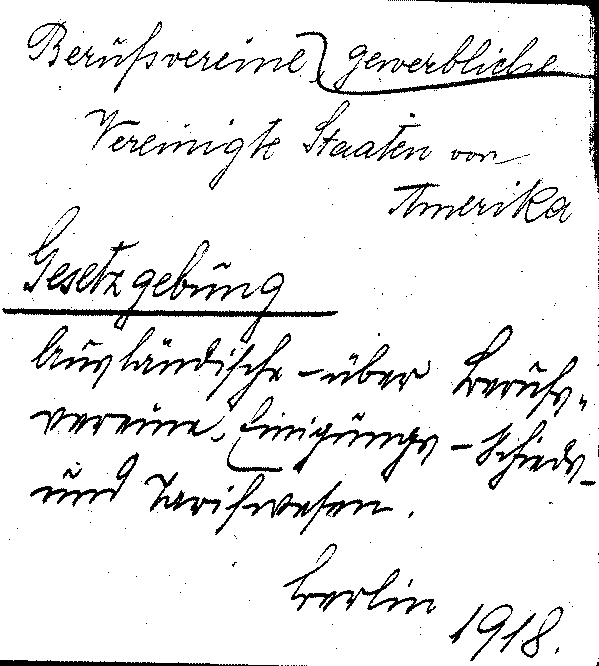 Berufsvereine, gewerbliche
Vereinigte Staaten von
Amerika
Gesetzgebung
Ausländische - über Berufs-
vereine, Einigungs - Schieds-
und Tarifwesen.
Berlin 1918.